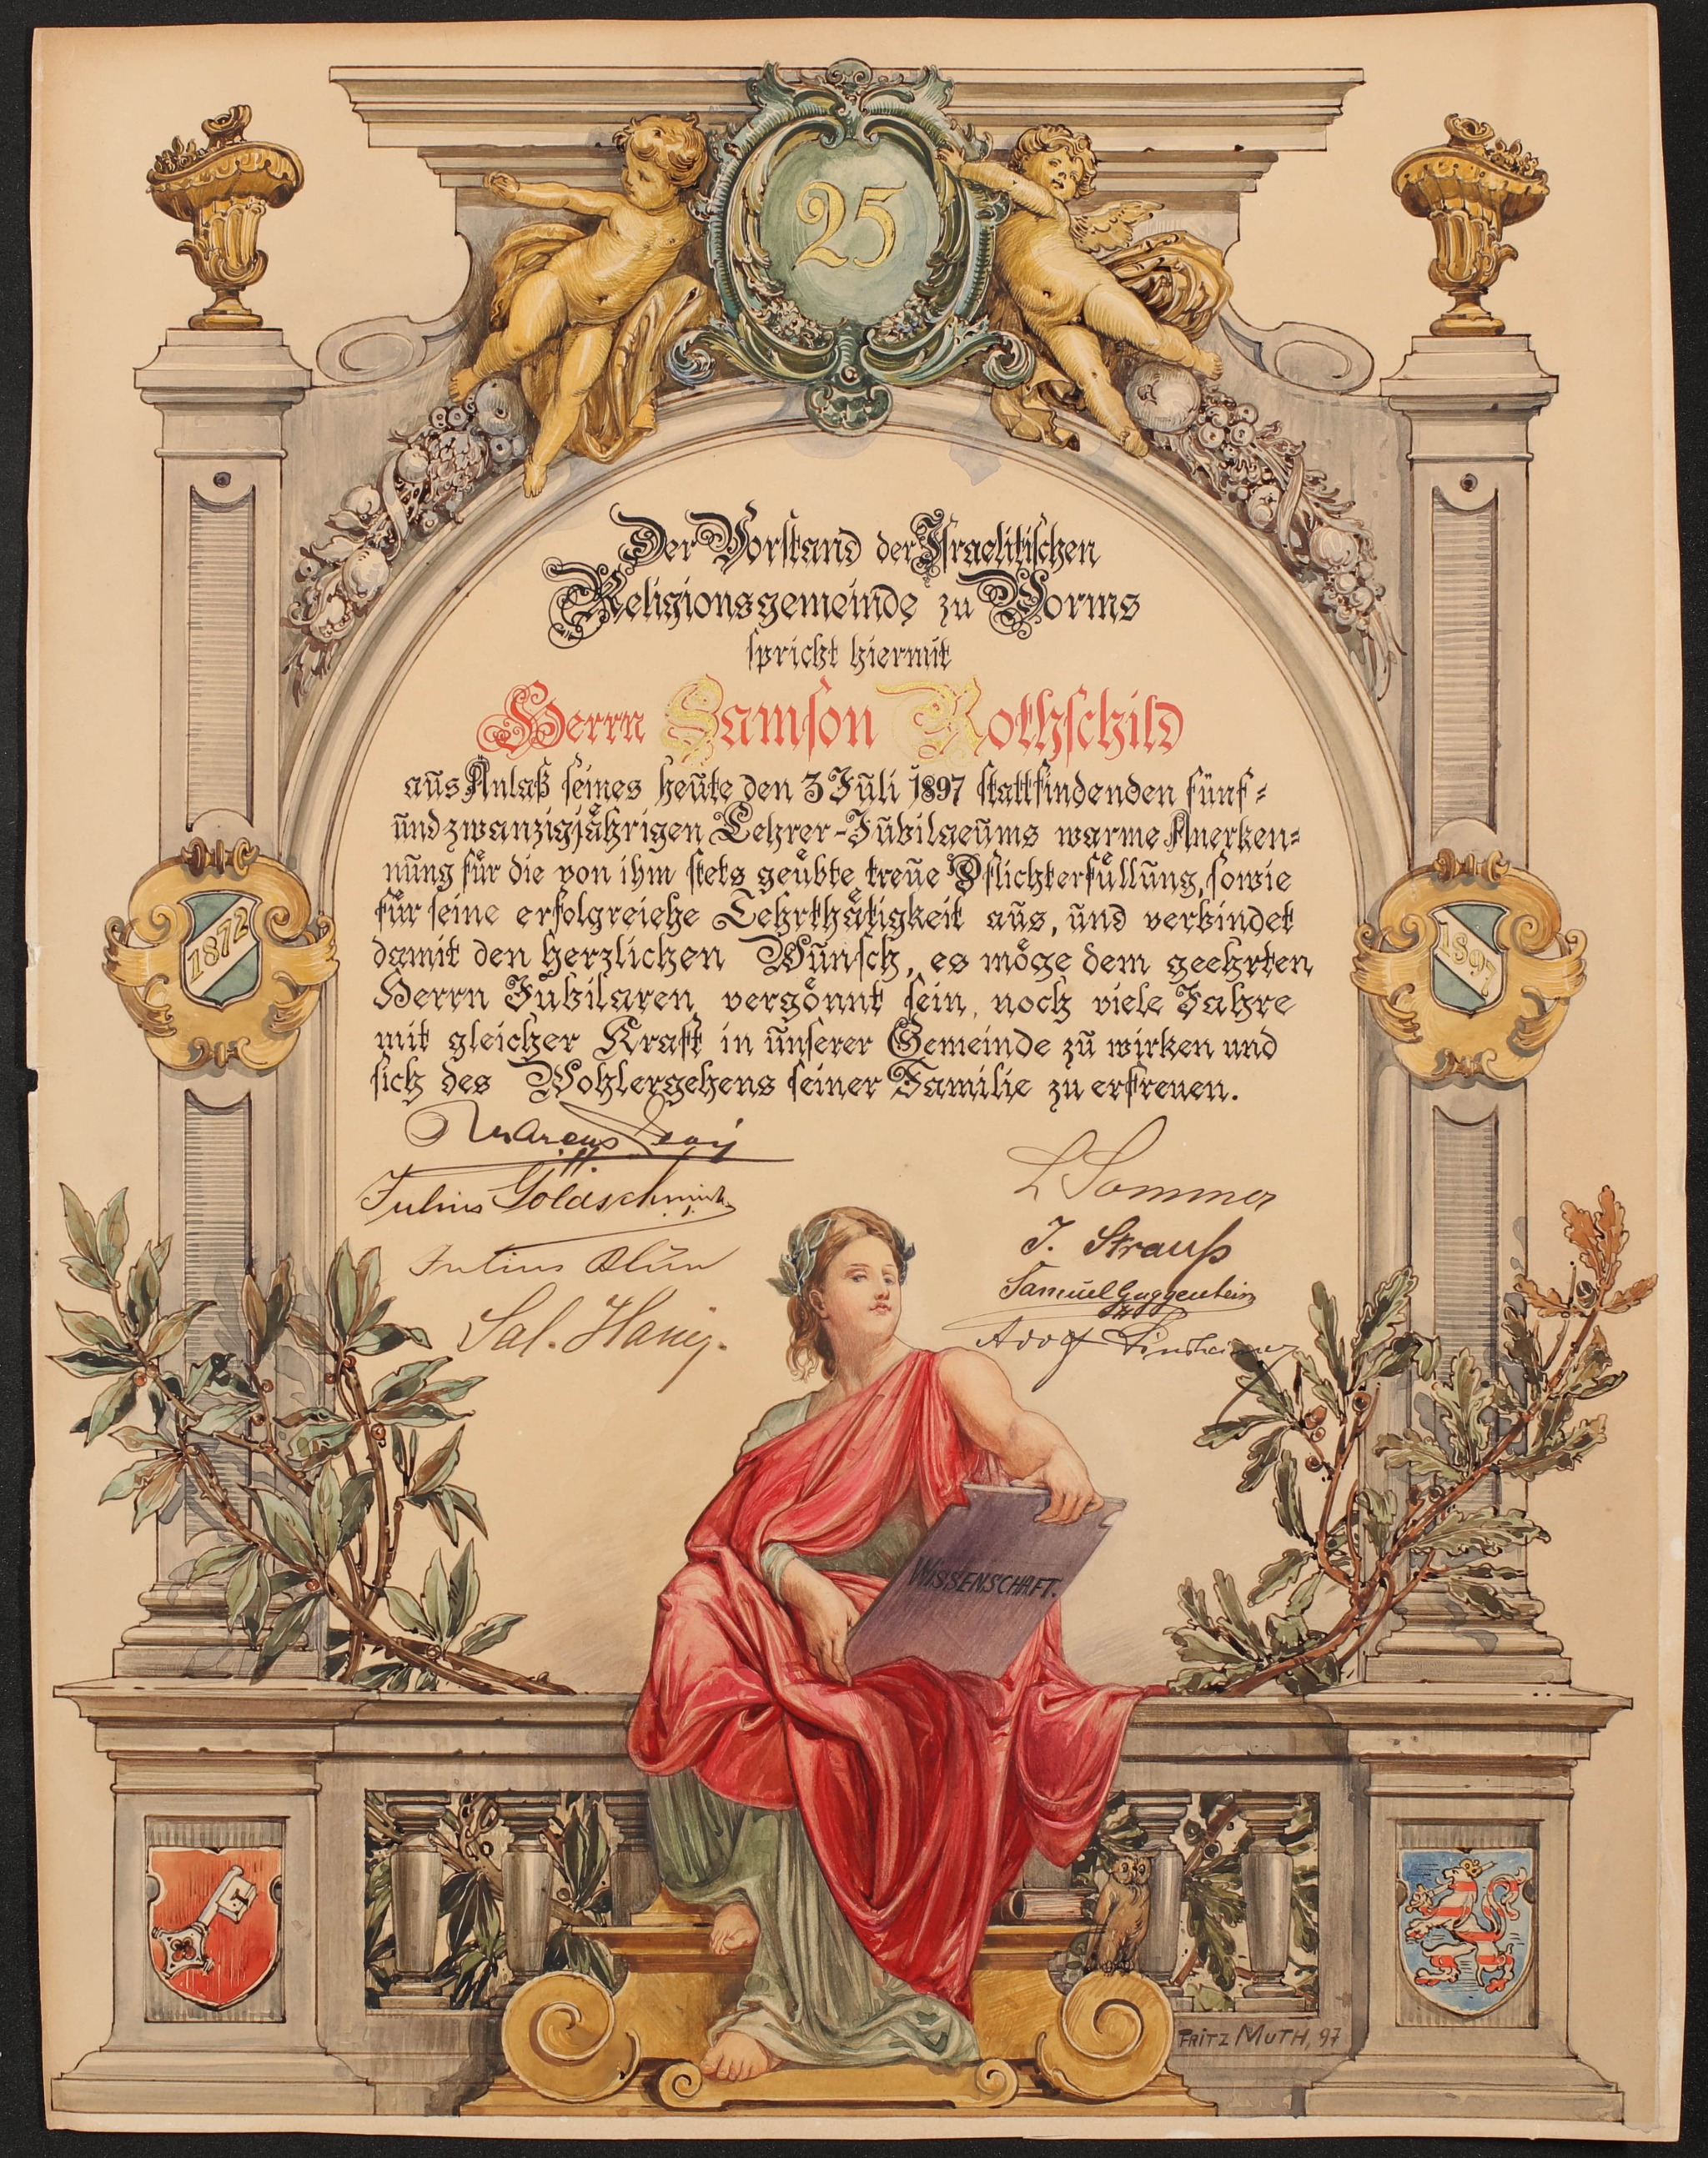 25
Der Vorstand der Israelitischen
Religionsgemeinde zu Worms
spricht hiermit
Herrn Samson Rothschild
aus Anlaß seines heute den 3 Juli 1897 stattfindenden fünf-
und zwanzigjährigen Lehrer-Jubilaeums warme Anerken-
nung für die von ihm stets geübte treue Pflichterfüllung, sowie
für seine erfolgreiche Lehrthätigkeit aus, und verbindet
damit den herzlichen Wunsch, es möge dem geehrten
Herrn Jubilaren vergönnt sein, noch viele Jahre
mit gleicher Kraft in unserer Gemeinde zu wirken und
sich des Wohlergehens seiner Familie zu erfreuen.
1872
1897
Marcus
Julius Goldschmidt
Julius Blün
Sal.
L Sommer
J. Strauß
Samuel Guggenheim
Adolf Sinsheimer
WISSENSCHAFT.
FRITZ MUTH, 97